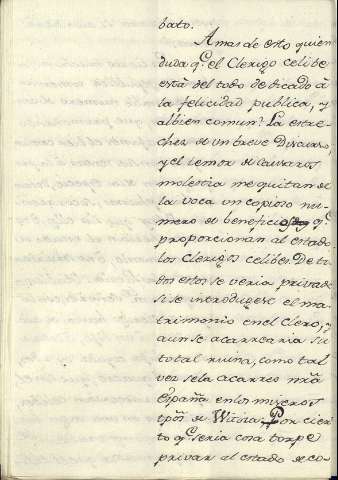 bato.
A mas de esto quien
duda q.e el Clerigo celibe
está del todo dedicado á
la felicidad publica, y
al bien comun? La estre-
chez de un breve Discurso,
y el temor de causaros
molestia me quitan de
la voca un copioso nu-
mero de beneficios q.e
proporcionan al estado
los Clerigos celibes. De to-
dos estos se veria privado
si se introdugese el ma-
trimonio en el Clero, y
aun se acarrearia su
total ruina, como tal
vez se la acarreó nrã
España en los miseros
tpõs de Witiza. Por cier-
to q.e seria cosa torpe
privar al estado de co-